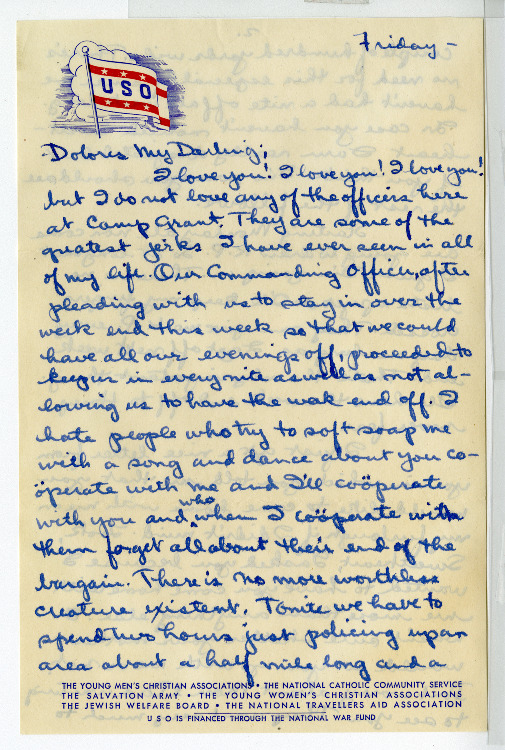 Friday -
USO
Dolores My Darling;
I love you! I love you! I love you!
but I do not love any of the officers here
at Camp Grant. They are some of the
greatest jerks I have ever seen in all
of my life. Our Commanding Officer, after
pleading with us to stay in over the
week end this week so that we could
have all our evenings off, proceeded to
keep us in every nite as well as not al-
lowing us to have the weak end off. I
hate people who try to soft soap me
with a song and dance about you co-
öperate with me and I'll coöperate
with you and who when I coöperate with
them forget all about their end of the
bargain. There is no more worthless
creature existent. Tonite we have to
spend two hours just policing up an
area about a half mile long and a
THE YOUNG MEN'S CHRISTIAN ASSOCIATIONS • THE NATIONAL CATHOLIC COMMUNITY SERVICE
THE SALVATION ARMY • THE YOUNG WOMEN'S CHRISTIAN ASSOCIATIONS
THE JEWISH WELFARE BOARD • THE NATIONAL TRAVELLERS AID ASSOCIATION
USO IS FINANCED THROUGH THE NATIONAL WAR FUND